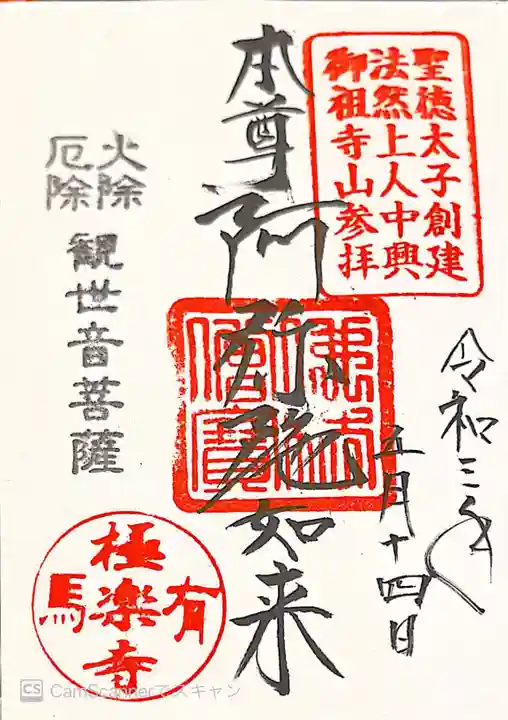 聖徳太子創建
法然上人中興
御祖寺山参拝
令和三年
五月十四日
本尊 阿弥陀如来
佛法僧寳
火除
厄除
観世音菩薩
有馬
極楽寺
CS CamScannerでスキャン